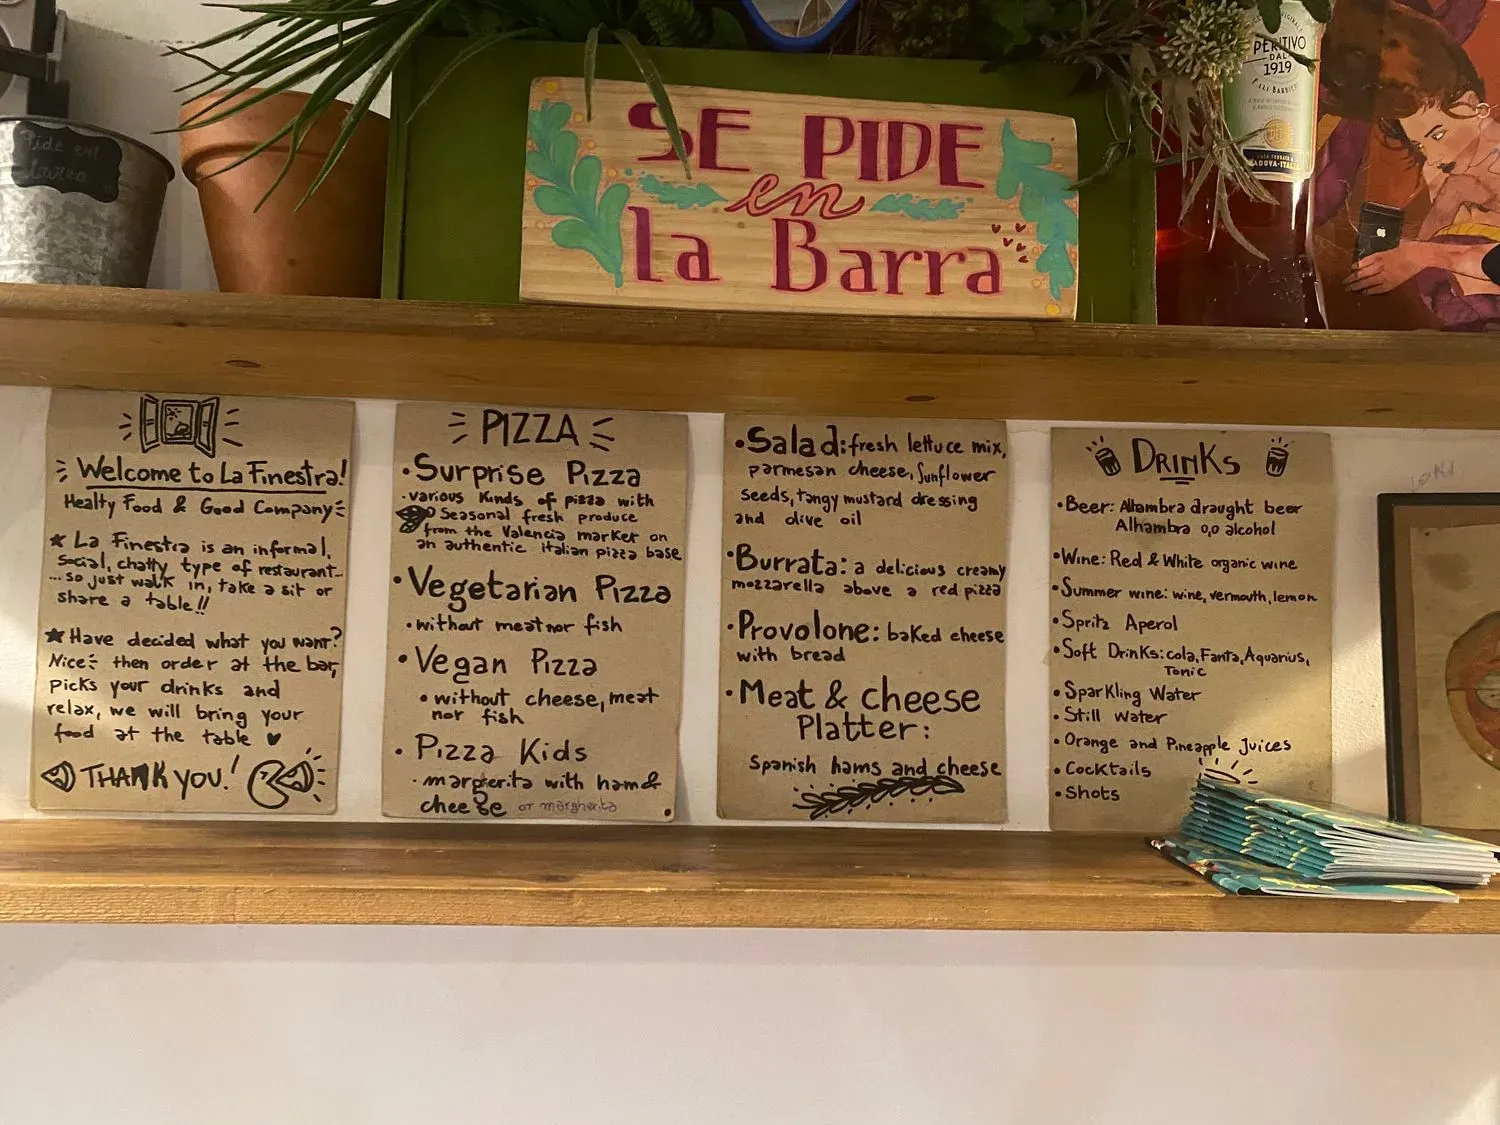 Pide en
barra
SE PIDE
en
la Barra
PERITIVO
DAL
1919
F.LLI BARBIERI
PADOVA-ITALIA
Welcome to La Finestra!
Healty Food & Good Company
La Finestra is an informal,
social, chatty type of restaurant...
...so just walk in, take a sit or
share a table!!
Have decided what you want?
Nice then order at the bar,
picks your drinks and
relax, we will bring your
food at the table
THANK YOU!
PIZZA
• Surprise Pizza
• various kinds of pizza with
Seasonal fresh produce
from the Valencia market on
an authentic italian pizza base
• Vegetarian Pizza
• without meat nor fish
• Vegan Pizza
• without cheese, meat
nor fish
• Pizza Kids
• margherita with ham &
cheese or margherita
• Salad: fresh lettuce mix,
parmesan cheese, sunflower
seeds, tangy mustard dressing
and olive oil
• Burrata: a delicious creamy
mozzarella above a red pizza
• Provolone: baked cheese
with bread
• Meat & cheese
Platter:
Spanish hams and cheese
DRINKS
• Beer: Alhambra draught beer
Alhambra 0,0 alcohol
• Wine: Red & White organic wine
• Summer wine: wine, vermouth, lemon
• Spritz Aperol
• Soft Drinks: cola, Fanta, Aquarius,
Tonic
• Sparkling Water
• Still Water
• Orange and Pineapple Juices
• Cocktails
• Shots